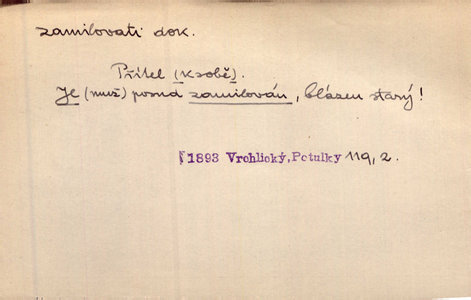 zamilovati dok.
Přítel (k sobě).
Je (muž) posud zamilován, blázen starý!
§ 1893 Vrchlický, Potulky 119, 2.